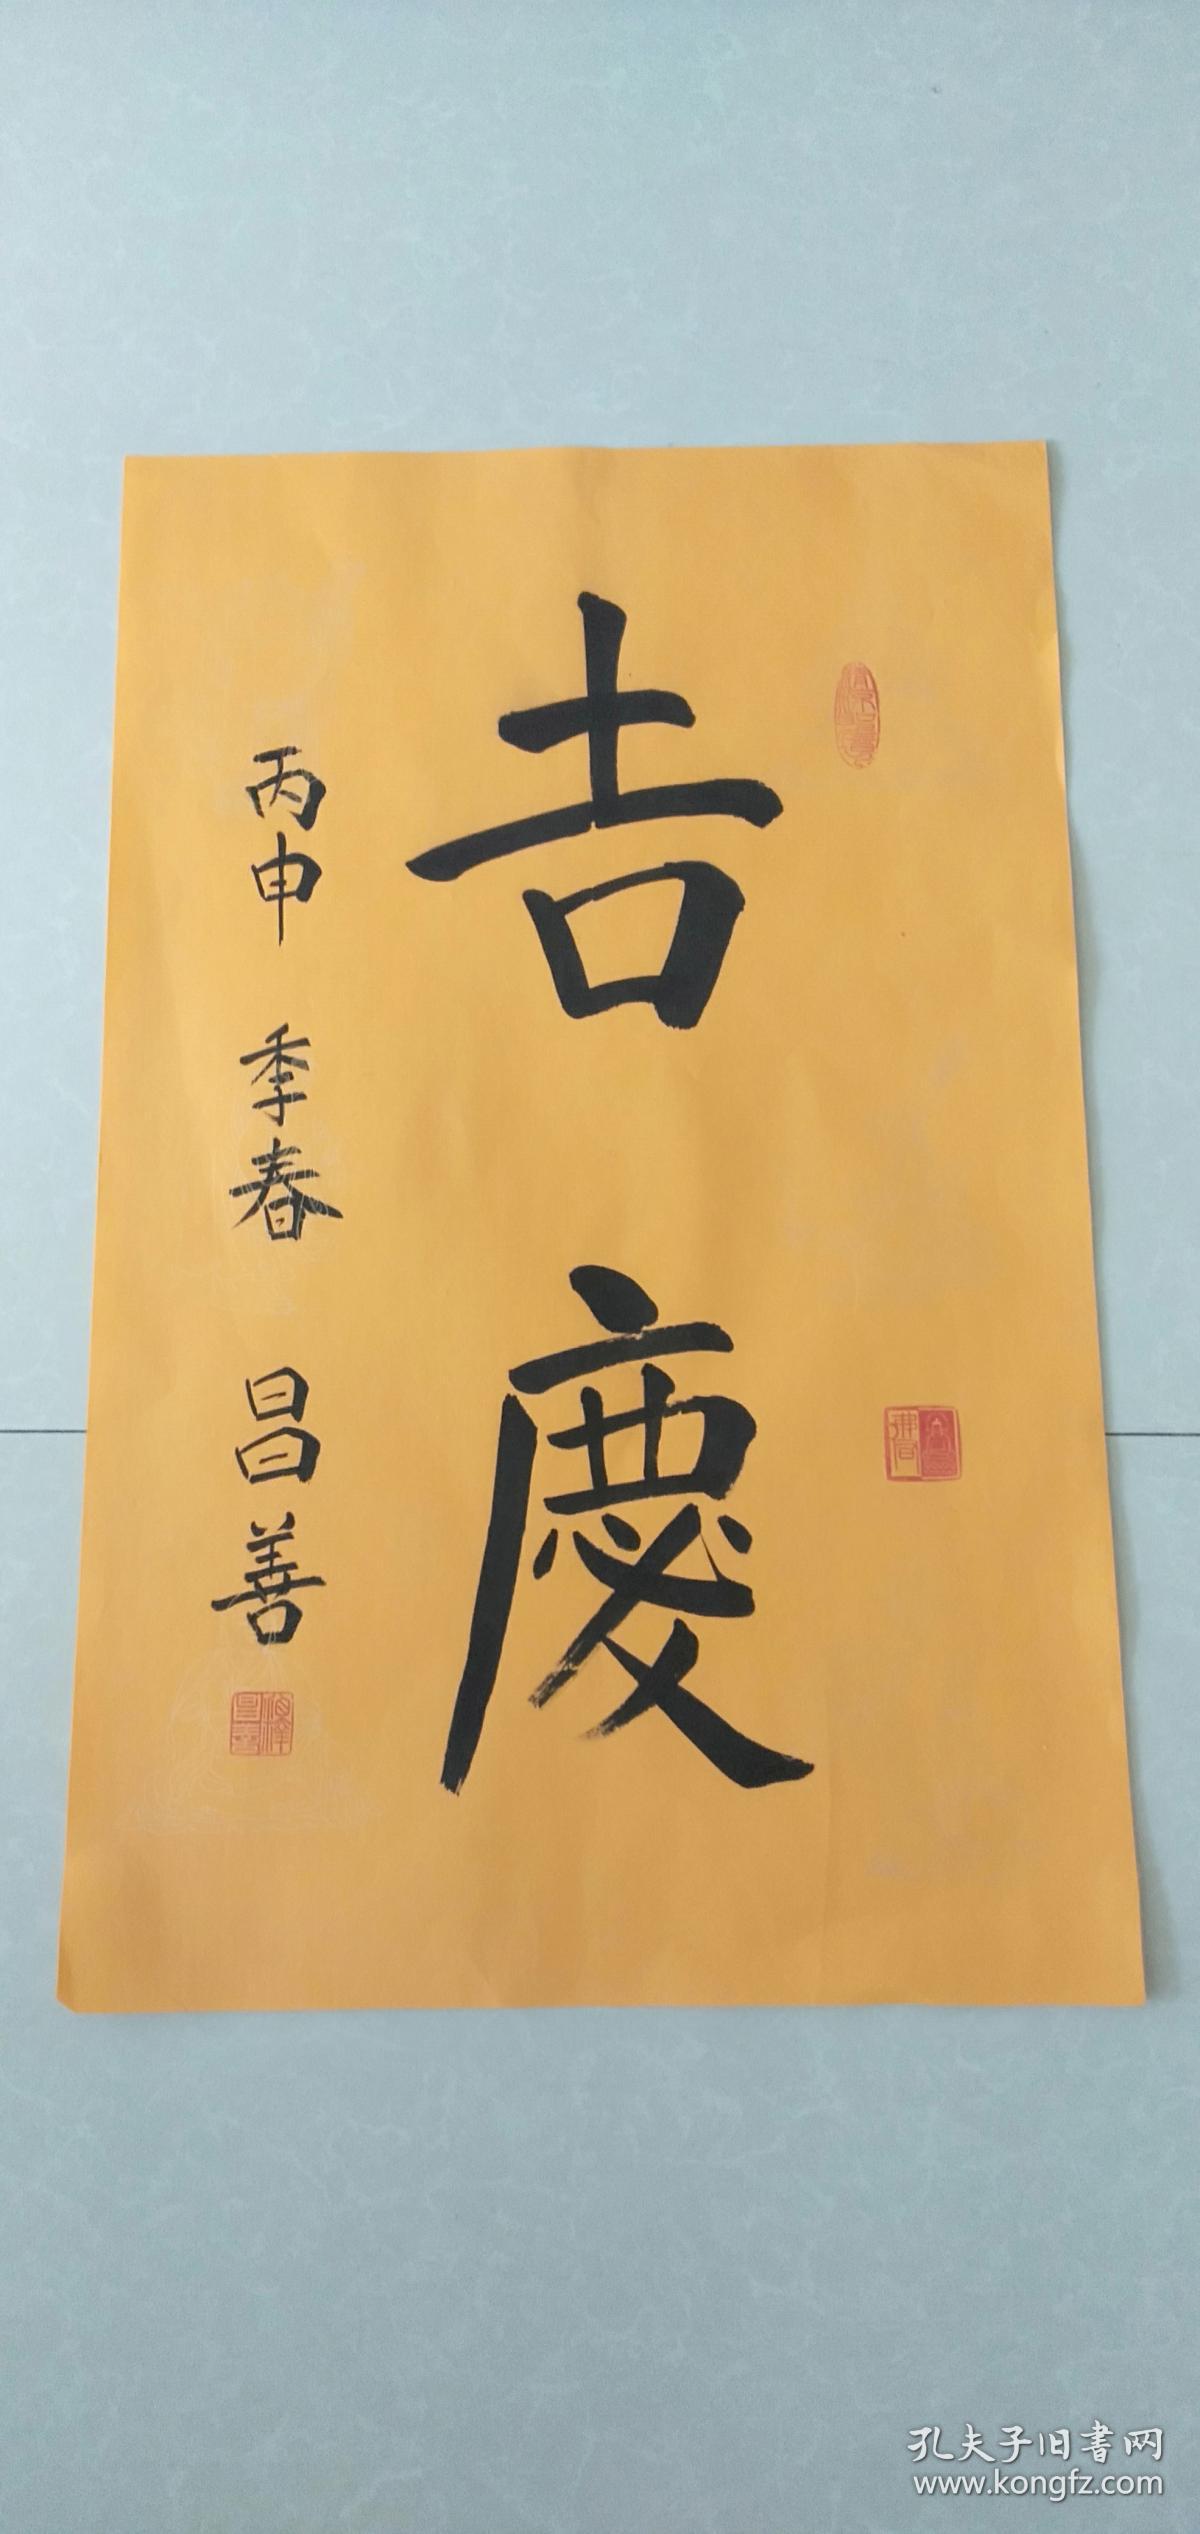 吉慶
丙申 季春 昌善
孔夫子旧書网
www.kongfz.com